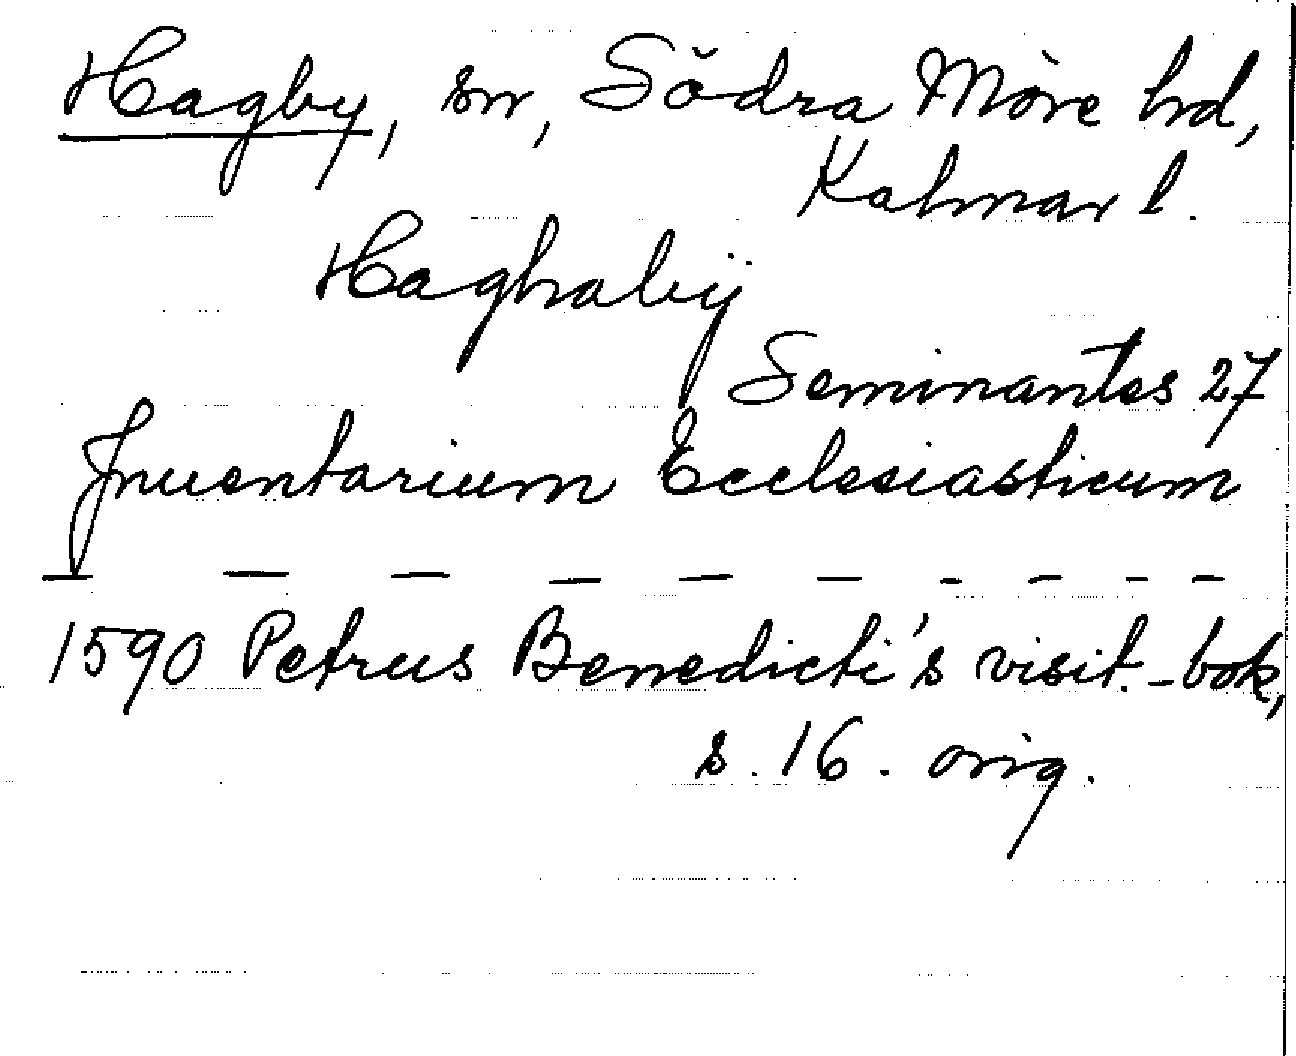 Hagby, sn, Södra Möre hd,
Kalmar l.
Haghabÿ
Seminantes 27
Inuentarium Ecclesiasticum
— — — — — — - - - -
1590 Petrus Benedicti's visit.-bok,
s. 16. orig.